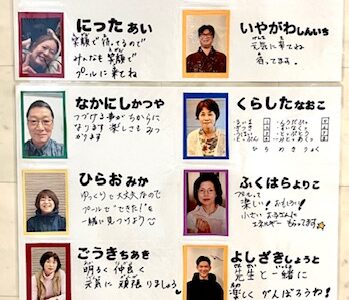 にった あい
笑顔で待ってるので
みんなも笑顔で
プールに来てね
いやがわ しんいち
元気に来てね
待ってます。
なかにし かつや
つづける事がちからに
なります 楽しさもみつ
かります
くらした なおこ
ひらお みか
ゆっくりで大丈夫なので
プールで“できた!”を
一緒に見つけよう
ふくはら よりこ
プールって
楽しい! おもしろい!
小さいお子さんに
エネルギーもらってます
ごうき ちあき
明るく 仲良く
元気に 頑張りましょう
よしざき しょうと
先生と一緒に
楽しく がんばろうね!